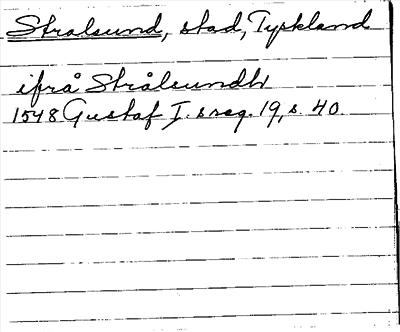 Stralsund, stad, Tyskland
ifrå Strålsundh
1548 Gustaf I. s reg. 19, s. 40.